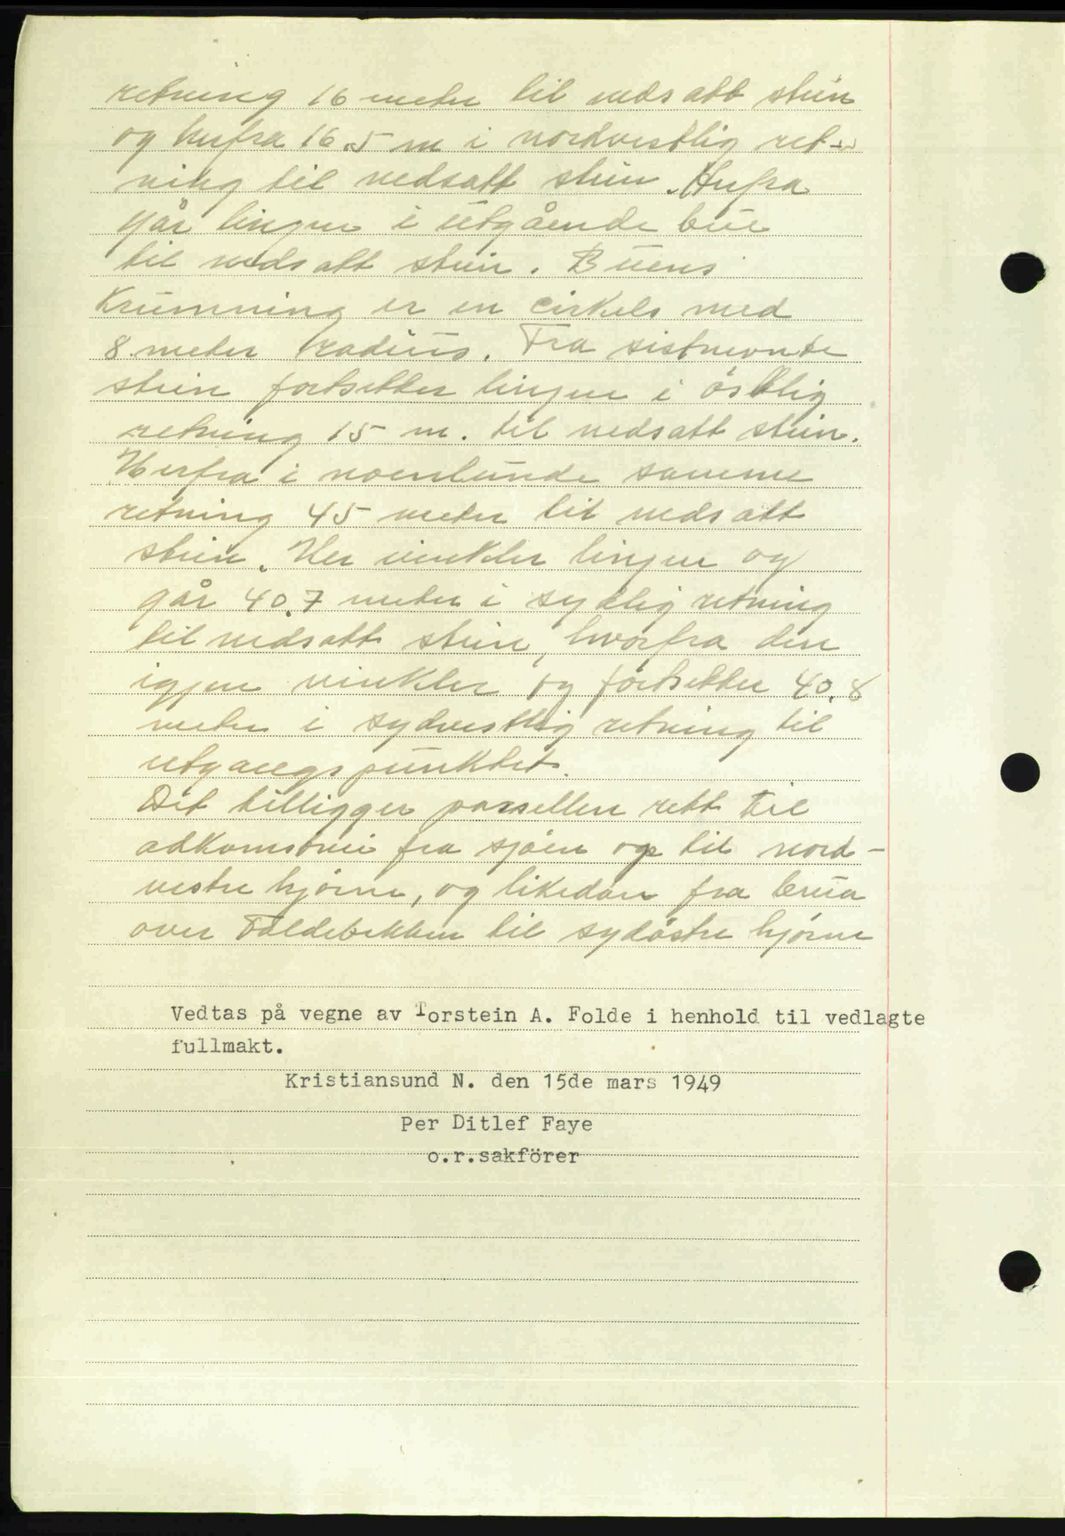 retning 16 meter til nedsatt stein
og herfra 16.5 m i nordvestlig ret-
ning til nedsatt stein. Herfra
går linjen i utgående bue
til nedsatt stein. Buens
Krumning er en cirkels med
8 meter radius. Fra sistnevnte
stein fortsetter linjen i östlig
retning 15 m. til nedsatt stein.
Herfra i noenlunde samme
retning 45 meter til nedsatt
stein. Her vinkler linjen og
går 40.7 meter i sydlig retning
til nedsatt stein, hvorfra den
igjen vinkler og fortsetter 40.8
meter i sydvestlig retning til
utgangspunktet.
Det tilligger parsellen rett til
adkomstvei fra sjöen op til nord-
vestre hjörne, og likedan fra brua
over Foldebekken til sydöstre hjörne
Vedtas på vegne av Torstein A. Folde i henhold til vedlagte
fullmakt.
Kristiansund N. den 15de mars 1949
Per Ditlef Faye
o.r.sakförer